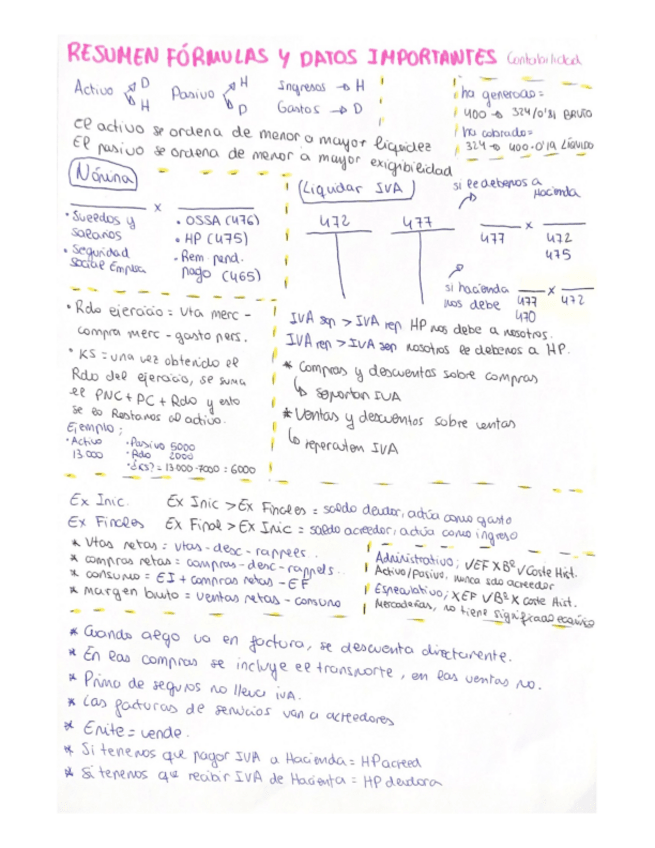 RESUMEN FÓRMULAS Y DATOS IMPORTANTES Contabilidad
Activo D H Pasivo H D Ingresos → H
Gastos → D
El activo se ordena de menor a mayor liquidez
El pasivo se ordena de menor a mayor exigibilidad
ha generado =
400 → 324/0'81 BRUTO
ha cobrado =
324 → 400·0'19 LÍQUIDO
Nómina
x
• Sueldos y salarios
• Seguridad social Empresa
• OSSA (476)
• HP (475)
• Rem. pend. pago (465)
Liquidar IVA
si le debemos a Hacienda
472 477
477 x 472
475
si hacienda nos debe
477 x 472
470
IVA sop > IVA rep HP nos debe a nosotros.
IVA rep > IVA sop nosotros le debemos a HP.
* Compras y descuentos sobre compras
↳ soportan IVA
* Ventas y descuentos sobre ventas
↳ repercuten IVA
• Rdo ejercicio = Vta merc -
compra merc - gasto pers.
• KS = una vez obtenido el
Rdo del ejercicio, se suma
el PNC + PC + Rdo y esto
se lo Restamos al activo.
Ejemplo;
• Activo 13000
• Pasivo 5000
• Rdo 2000
• ¿KS? = 13000 - 7000 = 6000
Ex Inic. Ex Inic > Ex Finales = saldo deudor, actúa como gasto
Ex Finales Ex Final > Ex Inic = saldo acreedor, actúa como ingreso
* Vtas netas = vtas - desc - rappels..
* compras netas = compras - desc - rappels..
* consumo = EI + compras netas - EF
* margen bruto = ventas netas - consumo
Administrativo; √EF XBº √Coste Hist.
Activo/Pasivo. nunca sdo acreedor
Especulativo; XEF √Bº X Coste Hist.
Mercaderías, no tiene significado
* Cuando algo va en factura, se descuenta directamente.
* En las compras se incluye el transporte, en las ventas no.
* Prima de seguros no lleva iva.
* Las facturas de servicios van a acreedores
* Emite = vende.
* Si tenemos que pagar IVA a Hacienda = HP acreed
* Si tenemos que recibir IVA de Hacienta = HP deudora